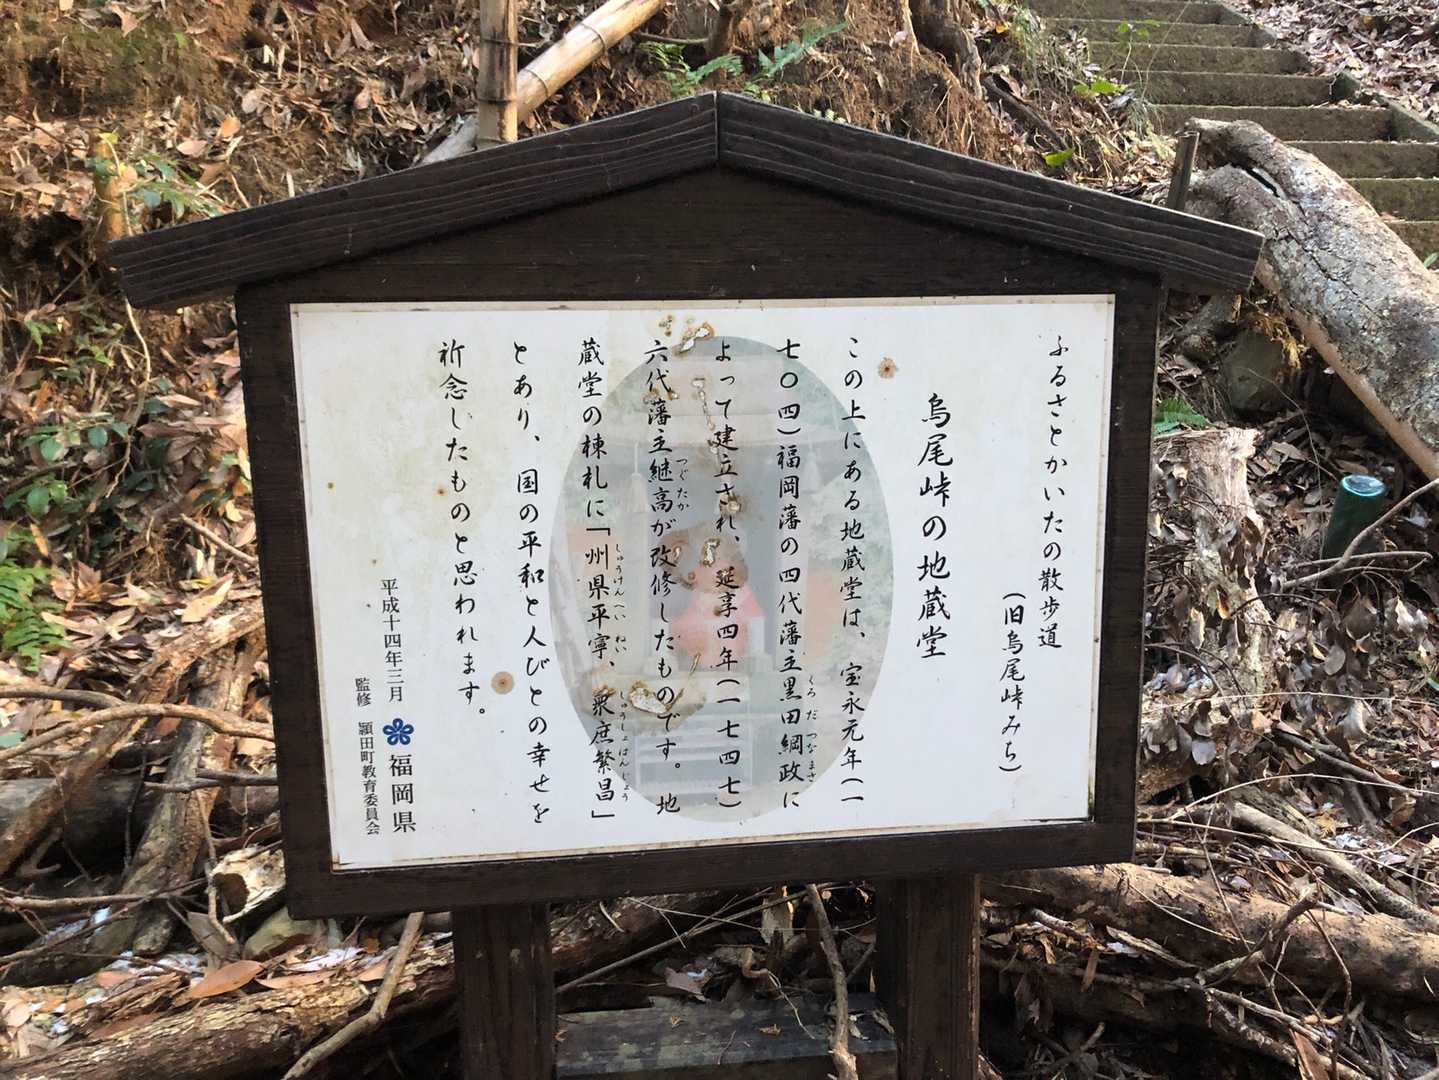 ふるさとかいたの散歩道
(旧烏尾峠みち)
烏尾峠の地蔵堂
この上にある地蔵堂は、宝永元年(一
七〇四)福岡藩の四代藩主黒田綱政に
くろだつなまさ
よって建立され、延享四年(一七四七)
六代藩主継高が改修したものです。地
つぐたか
蔵堂の棟札に「州県平寧、衆庶繁昌」
しゅうけんへいねい しゅうしょはんじょう
とあり、国の平和と人びとの幸せを
祈念したものと思われます。
平成十四年三月
福岡県
監修 頴田町教育委員会